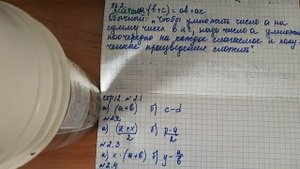 (b+c) = ab+ac
умножить число a на
сумму чисел b и c, надо число a умножить
поочерёдно на каждое слагаемое и полу-
ченные произведения сложить".
стр 12. №2.1
а) (a+b) б) c-d
№2.2
а) (x+x)/2 б) p-q/2
№2.3
а) x·(a+b) б) y-a/b
№2.4